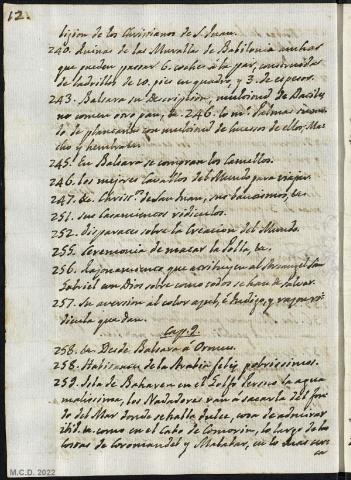 12.
ligion de los Christianos de S. Juan.
240. Ruina de las Muralla de Babilonia anchas
que pueden passar 6. coches à la par, construidas
de ladrillos de 10. pies en quadro, y 3. de espesor.
243. Balsara su Descripcion, multitud de Datiles
no comen otro pan, &c. 246. lo mº Palmas
do de plantarse con multitud de huessos de ellos, Ma
cho y hembra &c.
245. En Balsara se compran los Camellos.
246. los mejores Cavallos del Mundo para viajar.
247. &c. Christ.ˢ de San Juan, sus bautismos, &c.
251. sus Casamientos ridiculos.
252. Disparates sobre la Creacion del Mundo.
255. Ceremonia de matar la Polla, &c.
256. Razonamiento que atribuyen al Archangel San
Gabriel con Dios sobre como todos se han de salvar.
257. Su aversion al color azul, è Indigo, y razon ri
dicula que dan.
Cap. 9.
258. &c. Desde Balsara à Ormus.
258. Habitantes de la Arabia feliz pobrissimos.
259. Isla de Baharen en el Golfo Persico la agua
malissima, los Nadadores van à sacarla del fon
do del Mar donde se halla dulce, cosa de admirar
ibid. &c. como en el Cabo de Comorin, lo largo de las
Costas de Coromandel y Malabar, en lo mas cerc
ca
M.C.D. 2022